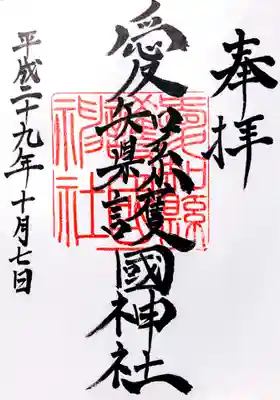 奉拝
愛知縣護國神社
平成二十九年十月七日
愛知縣
神社